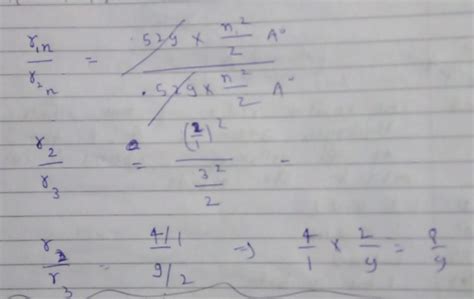 r₁n / r₂n = .529 × n₁²/2 A° / .529 × n²/2 A°
r₂ / r₃ = (2/1)² / 3²/2 -
r₂ / r₃ = 4/1 / 9/2 ⇒ 4/1 × 2/9 = 8/9